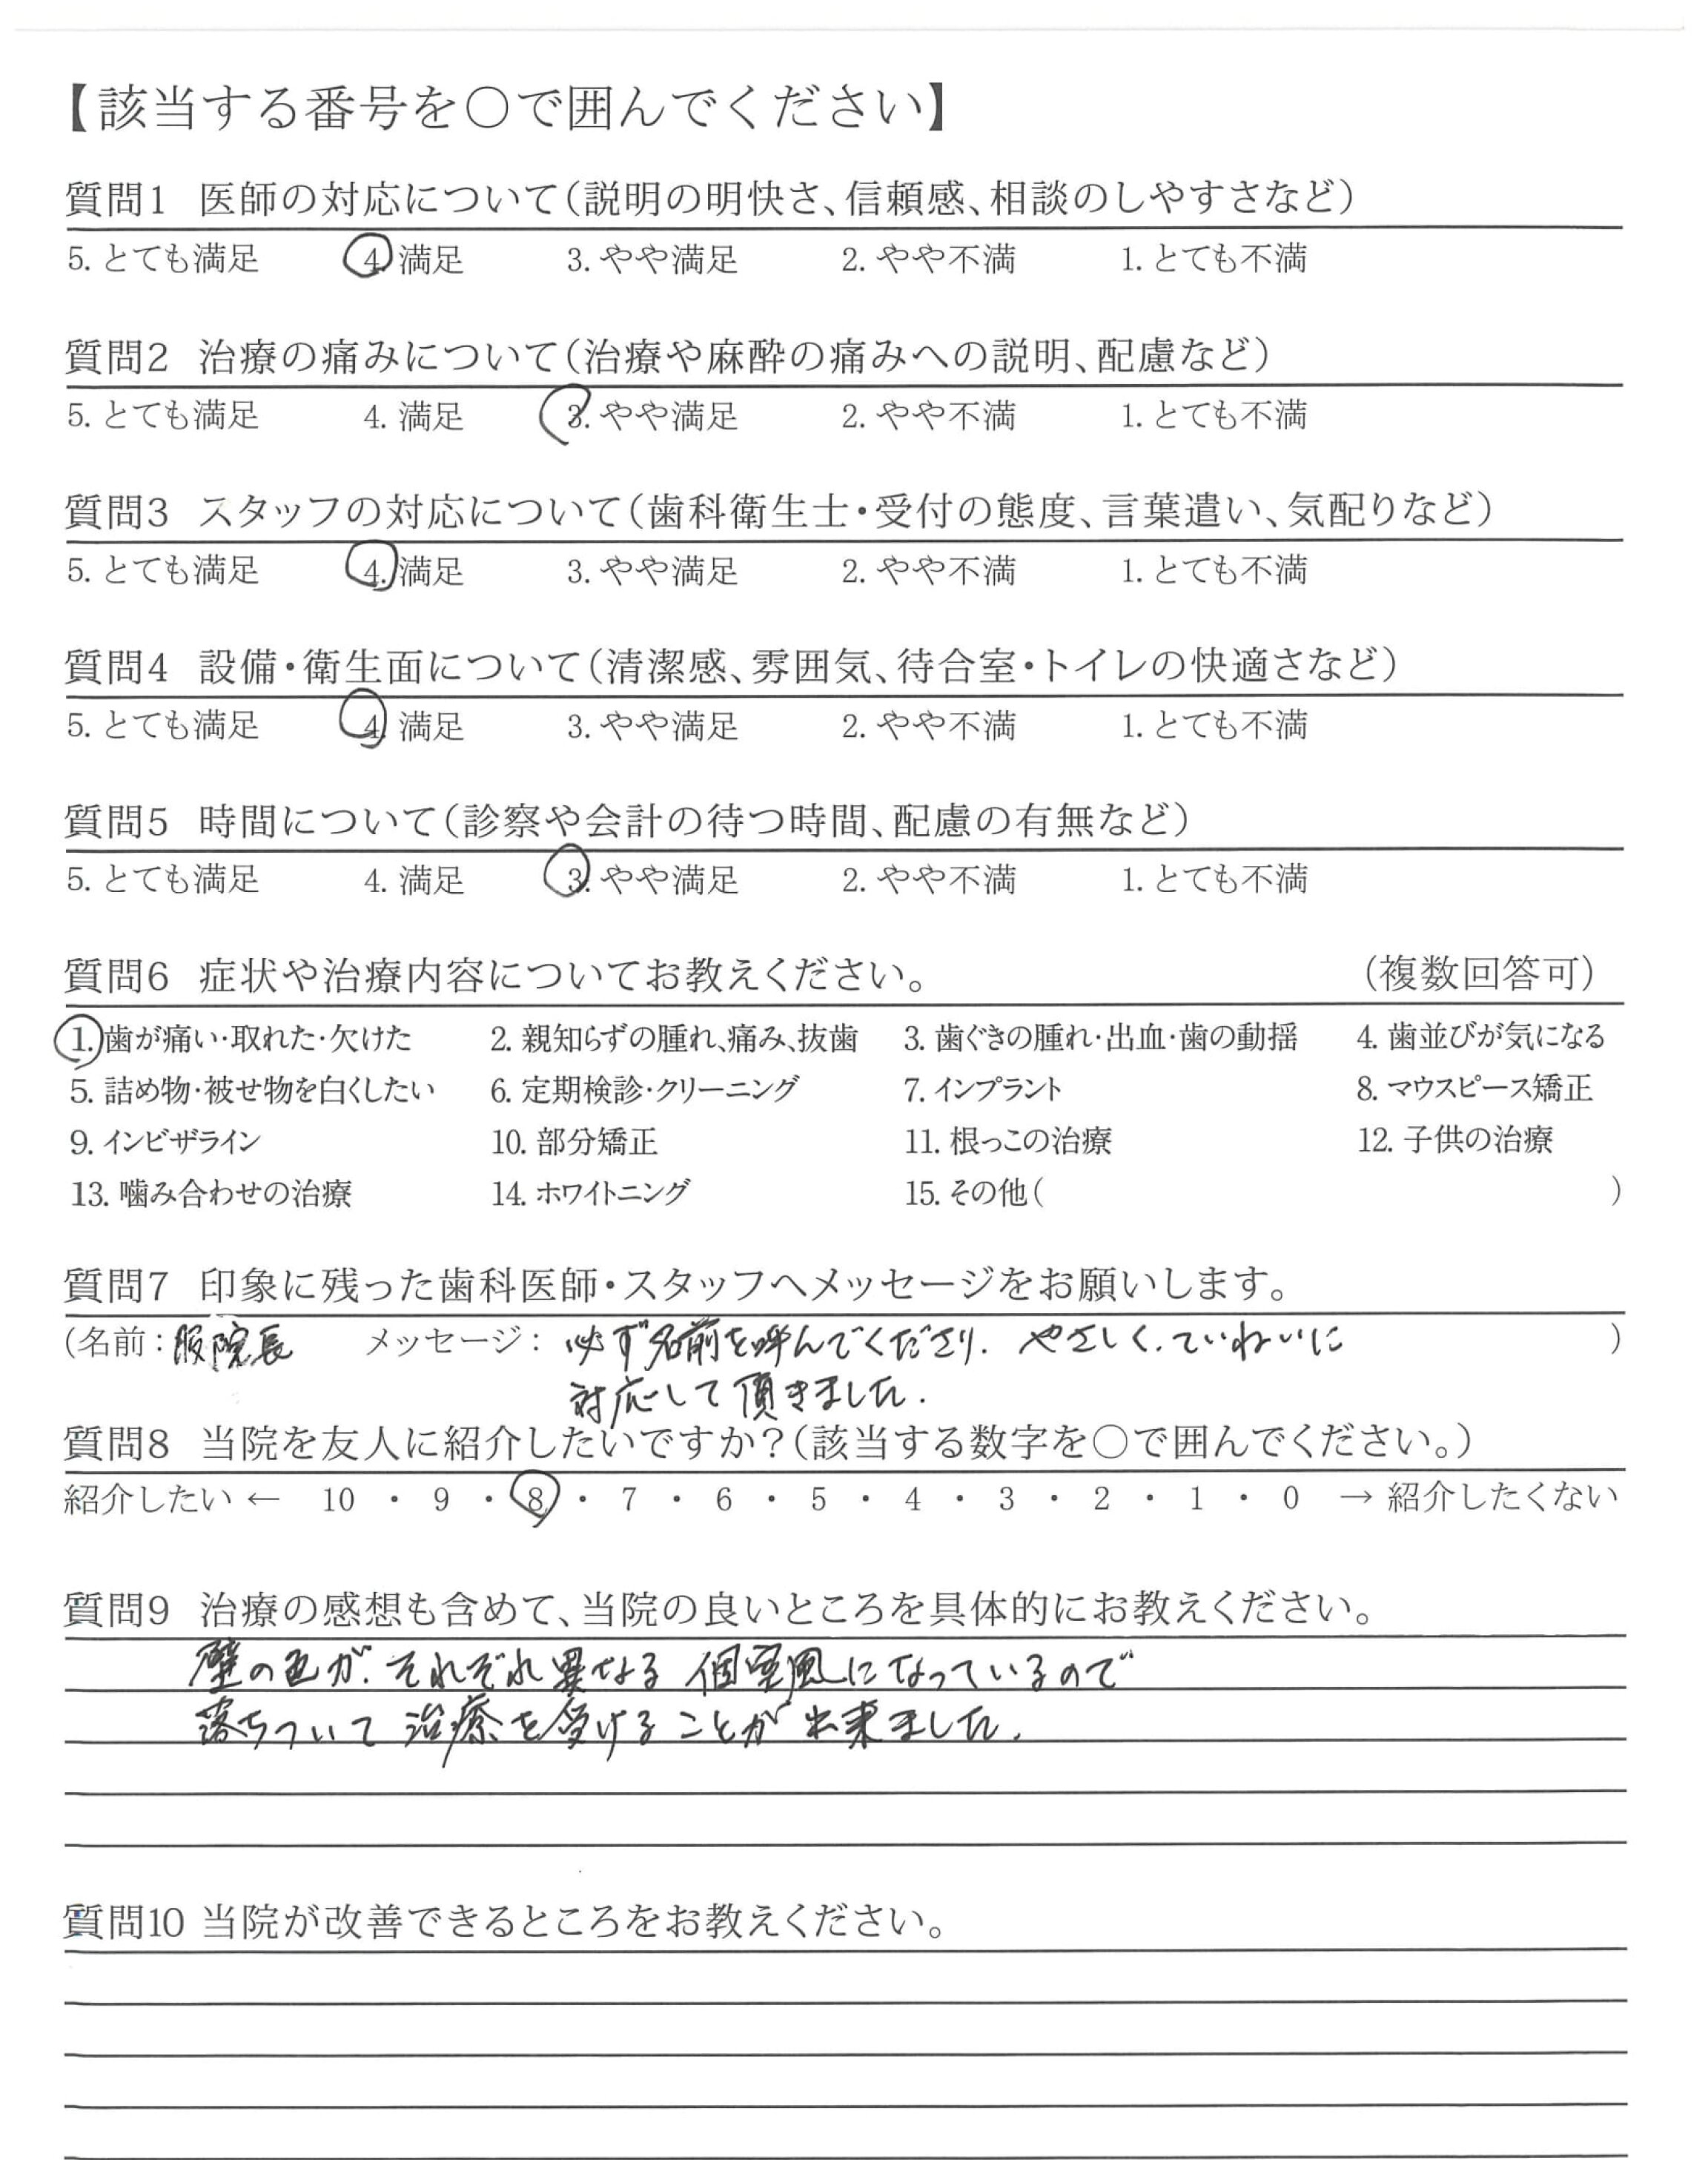 【該当する番号を○で囲んでください】
質問1 医師の対応について(説明の明快さ、信頼感、相談のしやすさなど)
5. とても満足 4. 満足 3. やや満足 2. やや不満 1. とても不満
質問2 治療の痛みについて(治療や麻酔の痛みへの説明、配慮など)
5. とても満足 4. 満足 3. やや満足 2. やや不満 1. とても不満
質問3 スタッフの対応について(歯科衛生士・受付の態度、言葉遣い、気配りなど)
5. とても満足 4. 満足 3. やや満足 2. やや不満 1. とても不満
質問4 設備・衛生面について(清潔感、雰囲気、待合室・トイレの快適さなど)
5. とても満足 4. 満足 3. やや満足 2. やや不満 1. とても不満
質問5 時間について(診察や会計の待つ時間、配慮の有無など)
5. とても満足 4. 満足 3. やや満足 2. やや不満 1. とても不満
質問6 症状や治療内容についてお教えください。 (複数回答可)
1. 歯が痛い・取れた・欠けた 2. 親知らずの腫れ、痛み、抜歯 3. 歯ぐきの腫れ・出血・歯の動揺 4. 歯並びが気になる
5. 詰め物・被せ物を白くしたい 6. 定期検診・クリーニング 7. インプラント 8. マウスピース矯正
9. インビザライン 10. 部分矯正 11. 根っこの治療 12. 子供の治療
13. 噛み合わせの治療 14. ホワイトニング 15. その他( )
質問7 印象に残った歯科医師・スタッフへメッセージをお願いします。
(名前: 院長 メッセージ: 必ず名前を呼んでくださり. やさしく.ていねいに )
対応して頂きました.
質問8 当院を友人に紹介したいですか?(該当する数字を○で囲んでください。)
紹介したい ← 10 ・ 9 ・ 8 ・ 7 ・ 6 ・ 5 ・ 4 ・ 3 ・ 2 ・ 1 ・ 0 → 紹介したくない
質問9 治療の感想も含めて、当院の良いところを具体的にお教えください。
壁の色が.それぞれ異なる 個室風になっているので
落ちついて 治療を受けることが出来ました.
質問10 当院が改善できるところをお教えください。